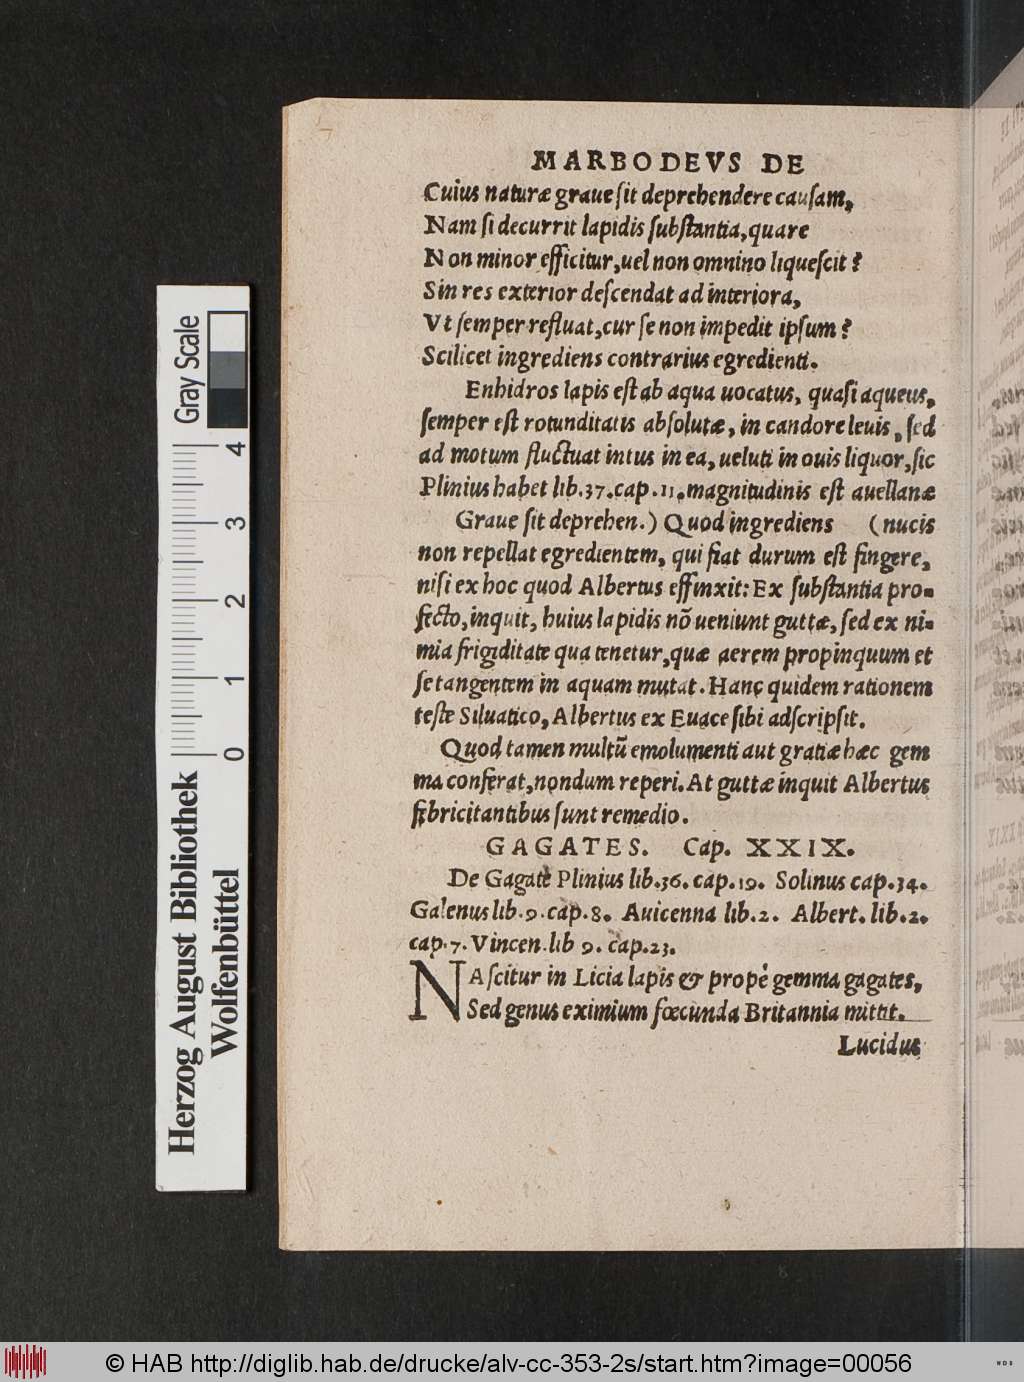 MARBODEVS DE
Cuius naturæ graue ſit deprehendere cauſam,
Nam ſi decurrit lapidis ſubſtantia, quare
Non minor efficitur, uel non omnino liqueſcit?
Sin res exterior deſcendat ad interiora,
Vt ſemper refluat, cur ſe non impedit ipſum?
Scilicet ingrediens contrarius egredienti.
Enhidros lapis eſt ab aqua uocatus, quaſi aqueus,
ſemper eſt rotunditatis abſolutæ, in candore leuis, ſed
ad motum fluctuat intus in ea, ueluti in ouis liquor, ſic
Plinius habet lib.37.cap.11. magnitudinis eſt auellanæ
Graue ſit deprehen.) Quod ingrediens (nucis
non repellat egredientem, qui fiat durum eſt fingere,
niſi ex hoc quod Albertus effinxit: Ex ſubſtantia pro-
fecto, inquit, huius lapidis nō ueniunt guttæ, ſed ex ni-
mia frigiditate qua tenetur, quæ aerem propinquum et
ſe tangentem in aquam mutat. Hanc quidem rationem
teſte Siluatico, Albertus ex Euace ſibi adſcripſit.
Quod tamen multū emolumenti aut gratiæ hæc gem
ma conferat, nondum reperi. At guttæ inquit Albertus
febricitantibus ſunt remedio.
GAGATES. Cap. XXIX.
De Gagate Plinius lib.36. cap.19. Solinus cap.34.
Galenus lib.9.cap.8. Auicenna lib.2. Albert. lib.2.
cap.7. Vincen.lib 9. cap.23.
NAſcitur in Licia lapis & propè gemma gagates,
Sed genus eximium fœcunda Britannia mittit.
Lucidus
Gray Scale
4
3
2
1
0
Herzog August Bibliothek
Wolfenbüttel
© HAB http://diglib.hab.de/drucke/alv-cc-353-2s/start.htm?image=00056